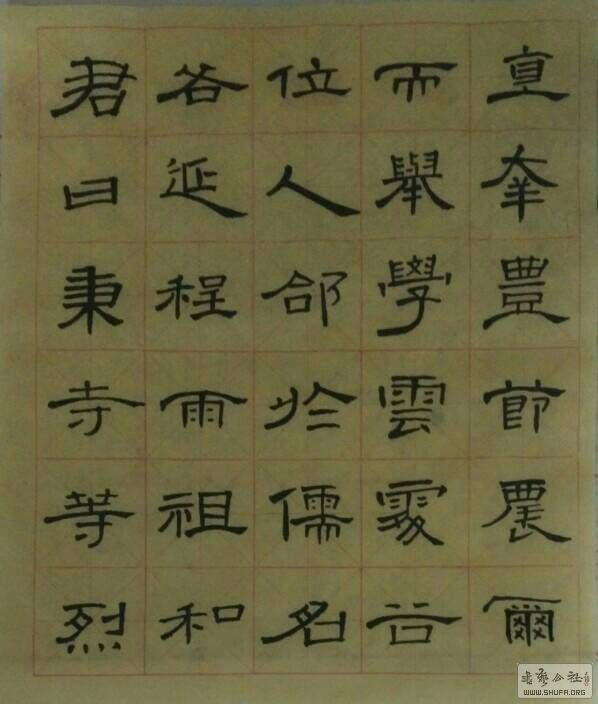 豊節農爾
而舉學雲
位人郃於儒名
延程雨祖和
君曰秉寺等烈
書藝公社
WWW.SHUFA.ORG